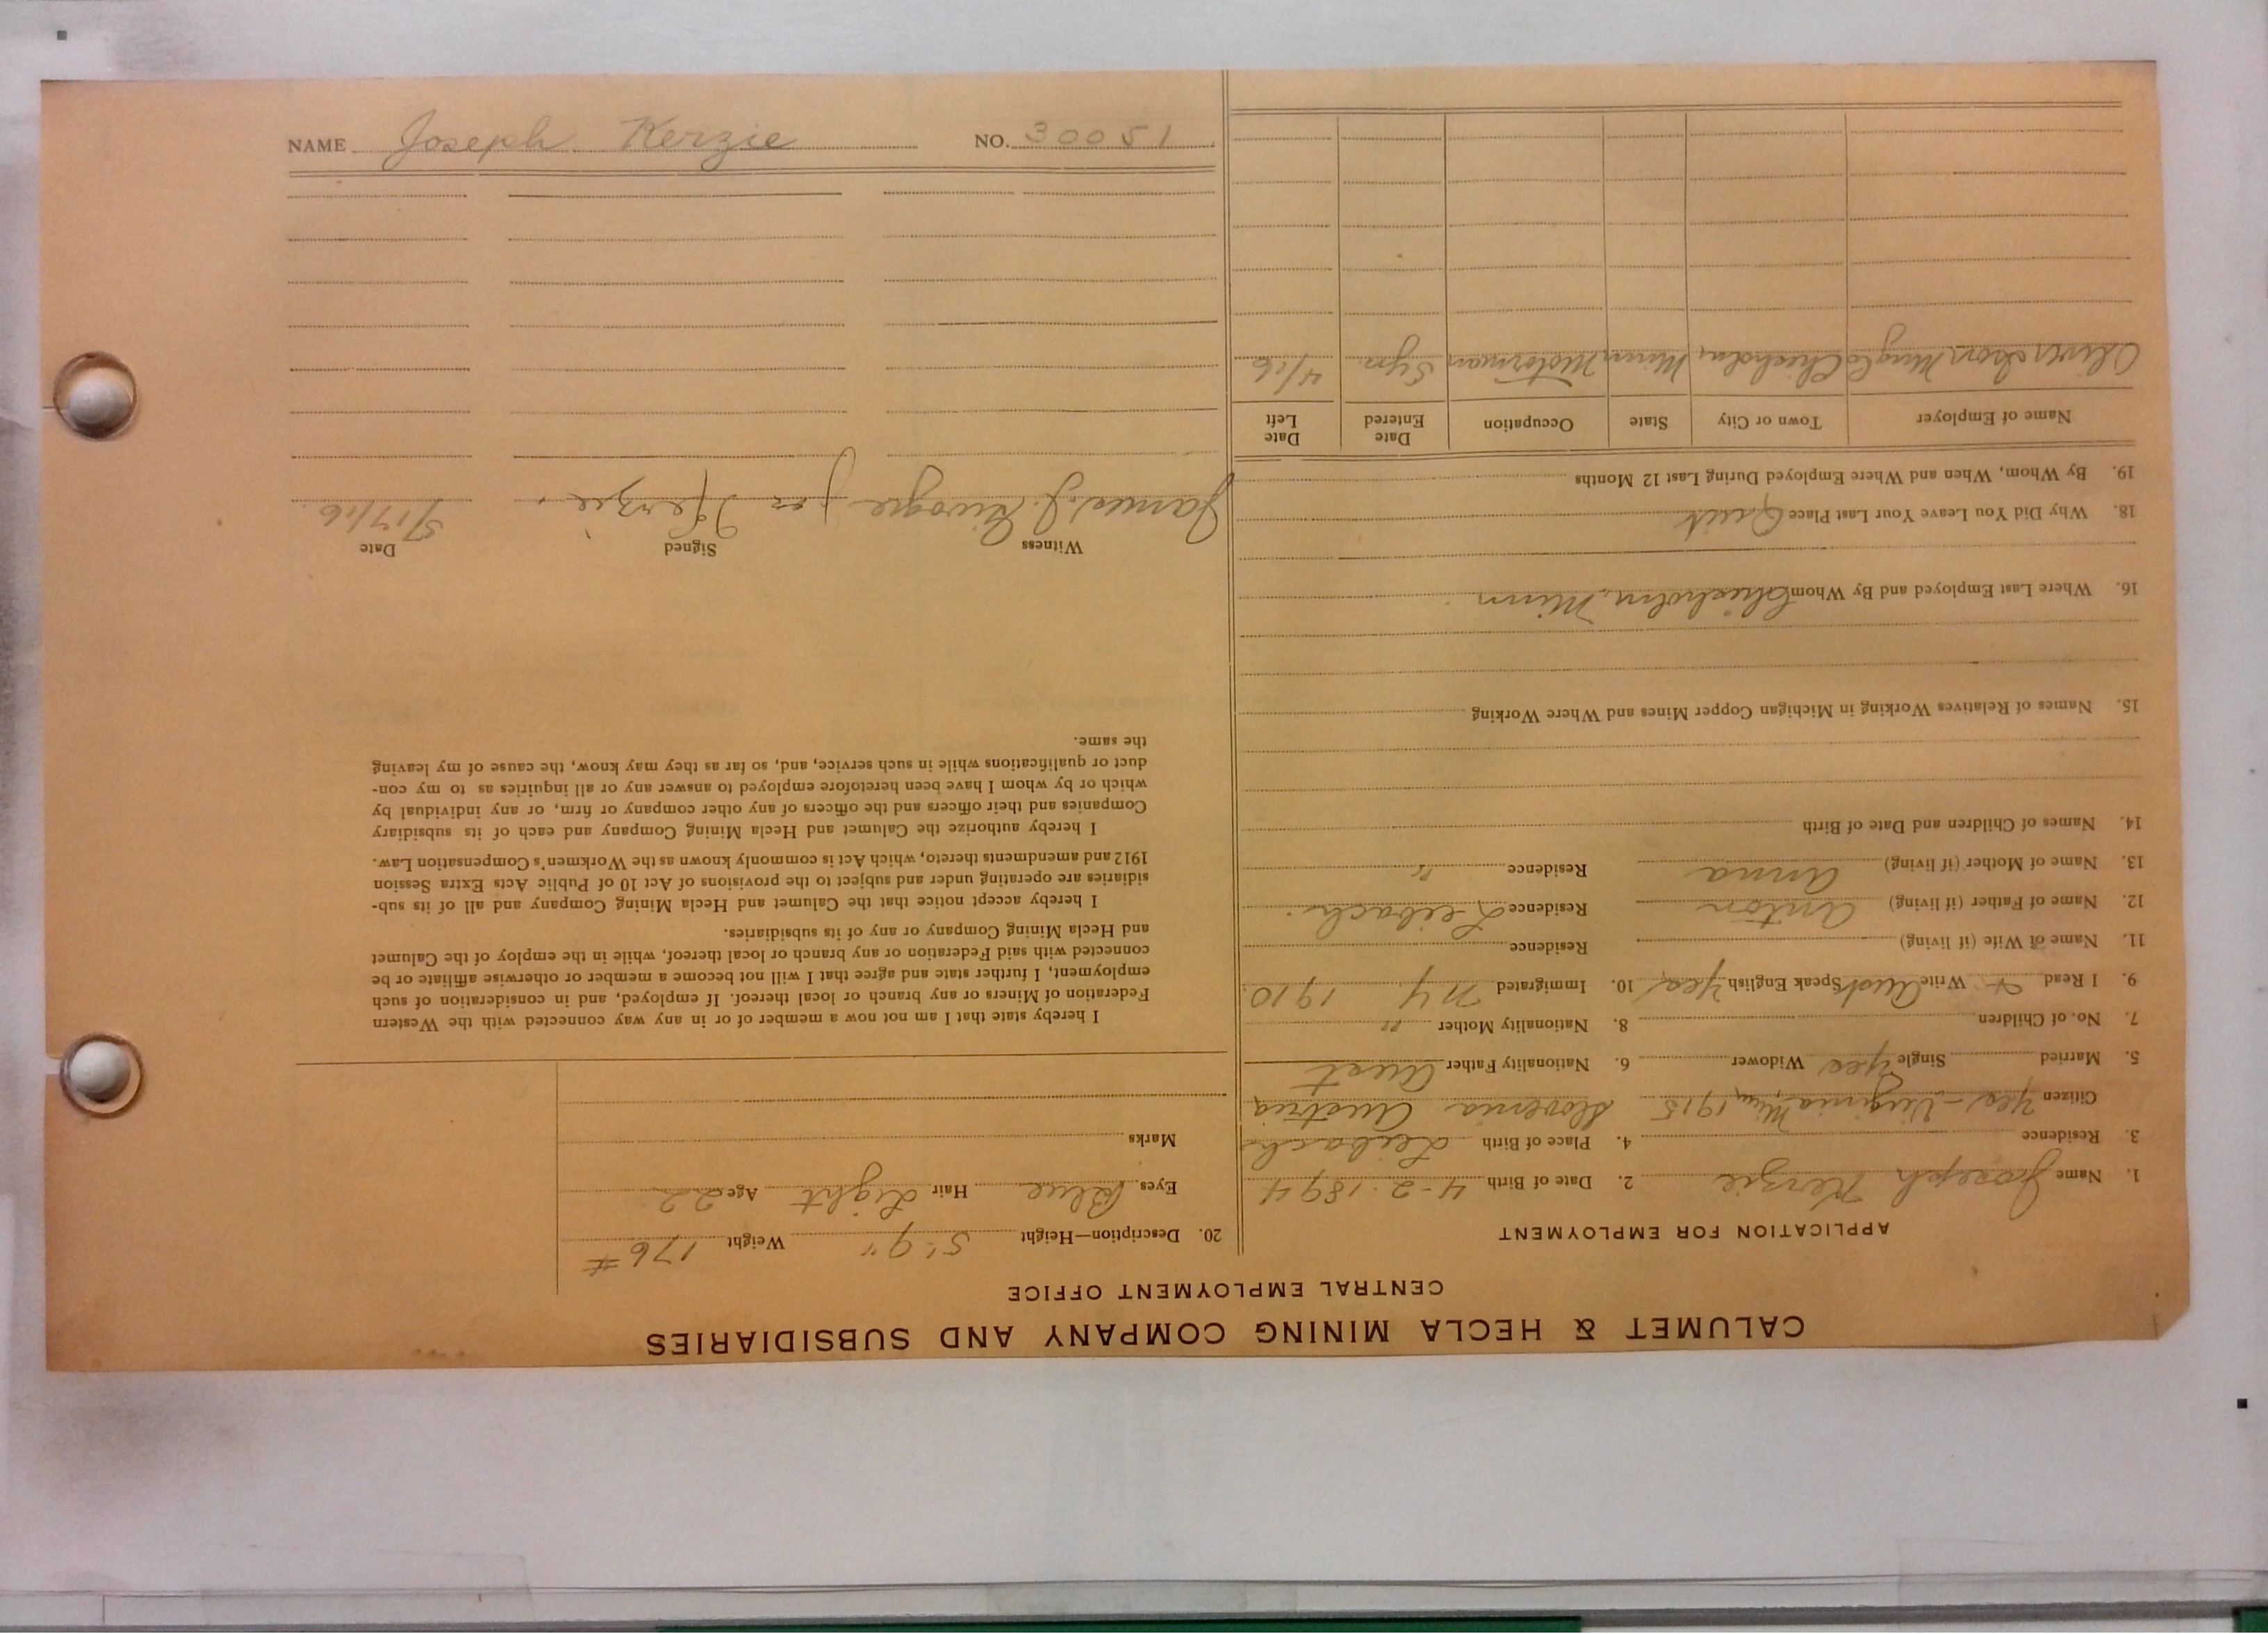 CALUMET & HECLA MINING COMPANY AND SUBSIDIARIES
CENTRAL EMPLOYMENT OFFICE
APPLICATION FOR EMPLOYMENT
1. Name Joseph Kerzie 2. Date of Birth 4-2-1894
3. Residence 4. Place of Birth Leibach
Citizen Yes - Virginia, Minn, 1915 Slovenia Austria
5. Married Single Yes Widower 6. Nationality Father Aust
7. No. of Children 8. Nationality Mother "
9. I Read + Write Aust Speak English Yes 10. Immigrated NY 1910
11. Name of Wife (if living) Residence
12. Name of Father (if living) Anton Residence Leibach.
13. Name of Mother (if living) Anna Residence "
14. Names of Children and Date of Birth
15. Names of Relatives Working in Michigan Copper Mines and Where Working
16. Where Last Employed and By Whom Chisholm, Minn
18. Why Did You Leave Your Last Place Quit
19. By Whom, When and Where Employed During Last 12 Months
Name of Employer Town or City State Occupation Date Entered Date Left
Oliver Iron Mng Co Chisholm, Minn Motorman 5yrs. 4/16
20. Description—Height 5' 9" Weight 176 #
Eyes Blue Hair Light Age 22
Marks
I hereby state that I am not now a member of or in any way connected with the Western
Federation of Miners or any branch or local thereof. If employed, and in consideration of such
employment, I further state and agree that I will not become a member or otherwise affiliate or be
connected with said Federation or any branch or local thereof, while in the employ of the Calumet
and Hecla Mining Company or any of its subsidiaries.
I hereby accept notice that the Calumet and Hecla Mining Company and all of its sub-
sidiaries are operating under and subject to the provisions of Act 10 of Public Acts Extra Session
1912 and amendments thereto, which Act is commonly known as the Workmen's Compensation Law.
I hereby authorize the Calumet and Hecla Mining Company and each of its subsidiary
Companies and their officers and the officers of any other company or firm, or any individual by
which or by whom I have been heretofore employed to answer any or all inquiries as to my con-
duct or qualifications while in such service, and, so far as they may know, the cause of my leaving
the same.
Witness Signed Date
James J. for Kerzie. 5/17/16.
NAME Joseph Kerzie NO. 30051